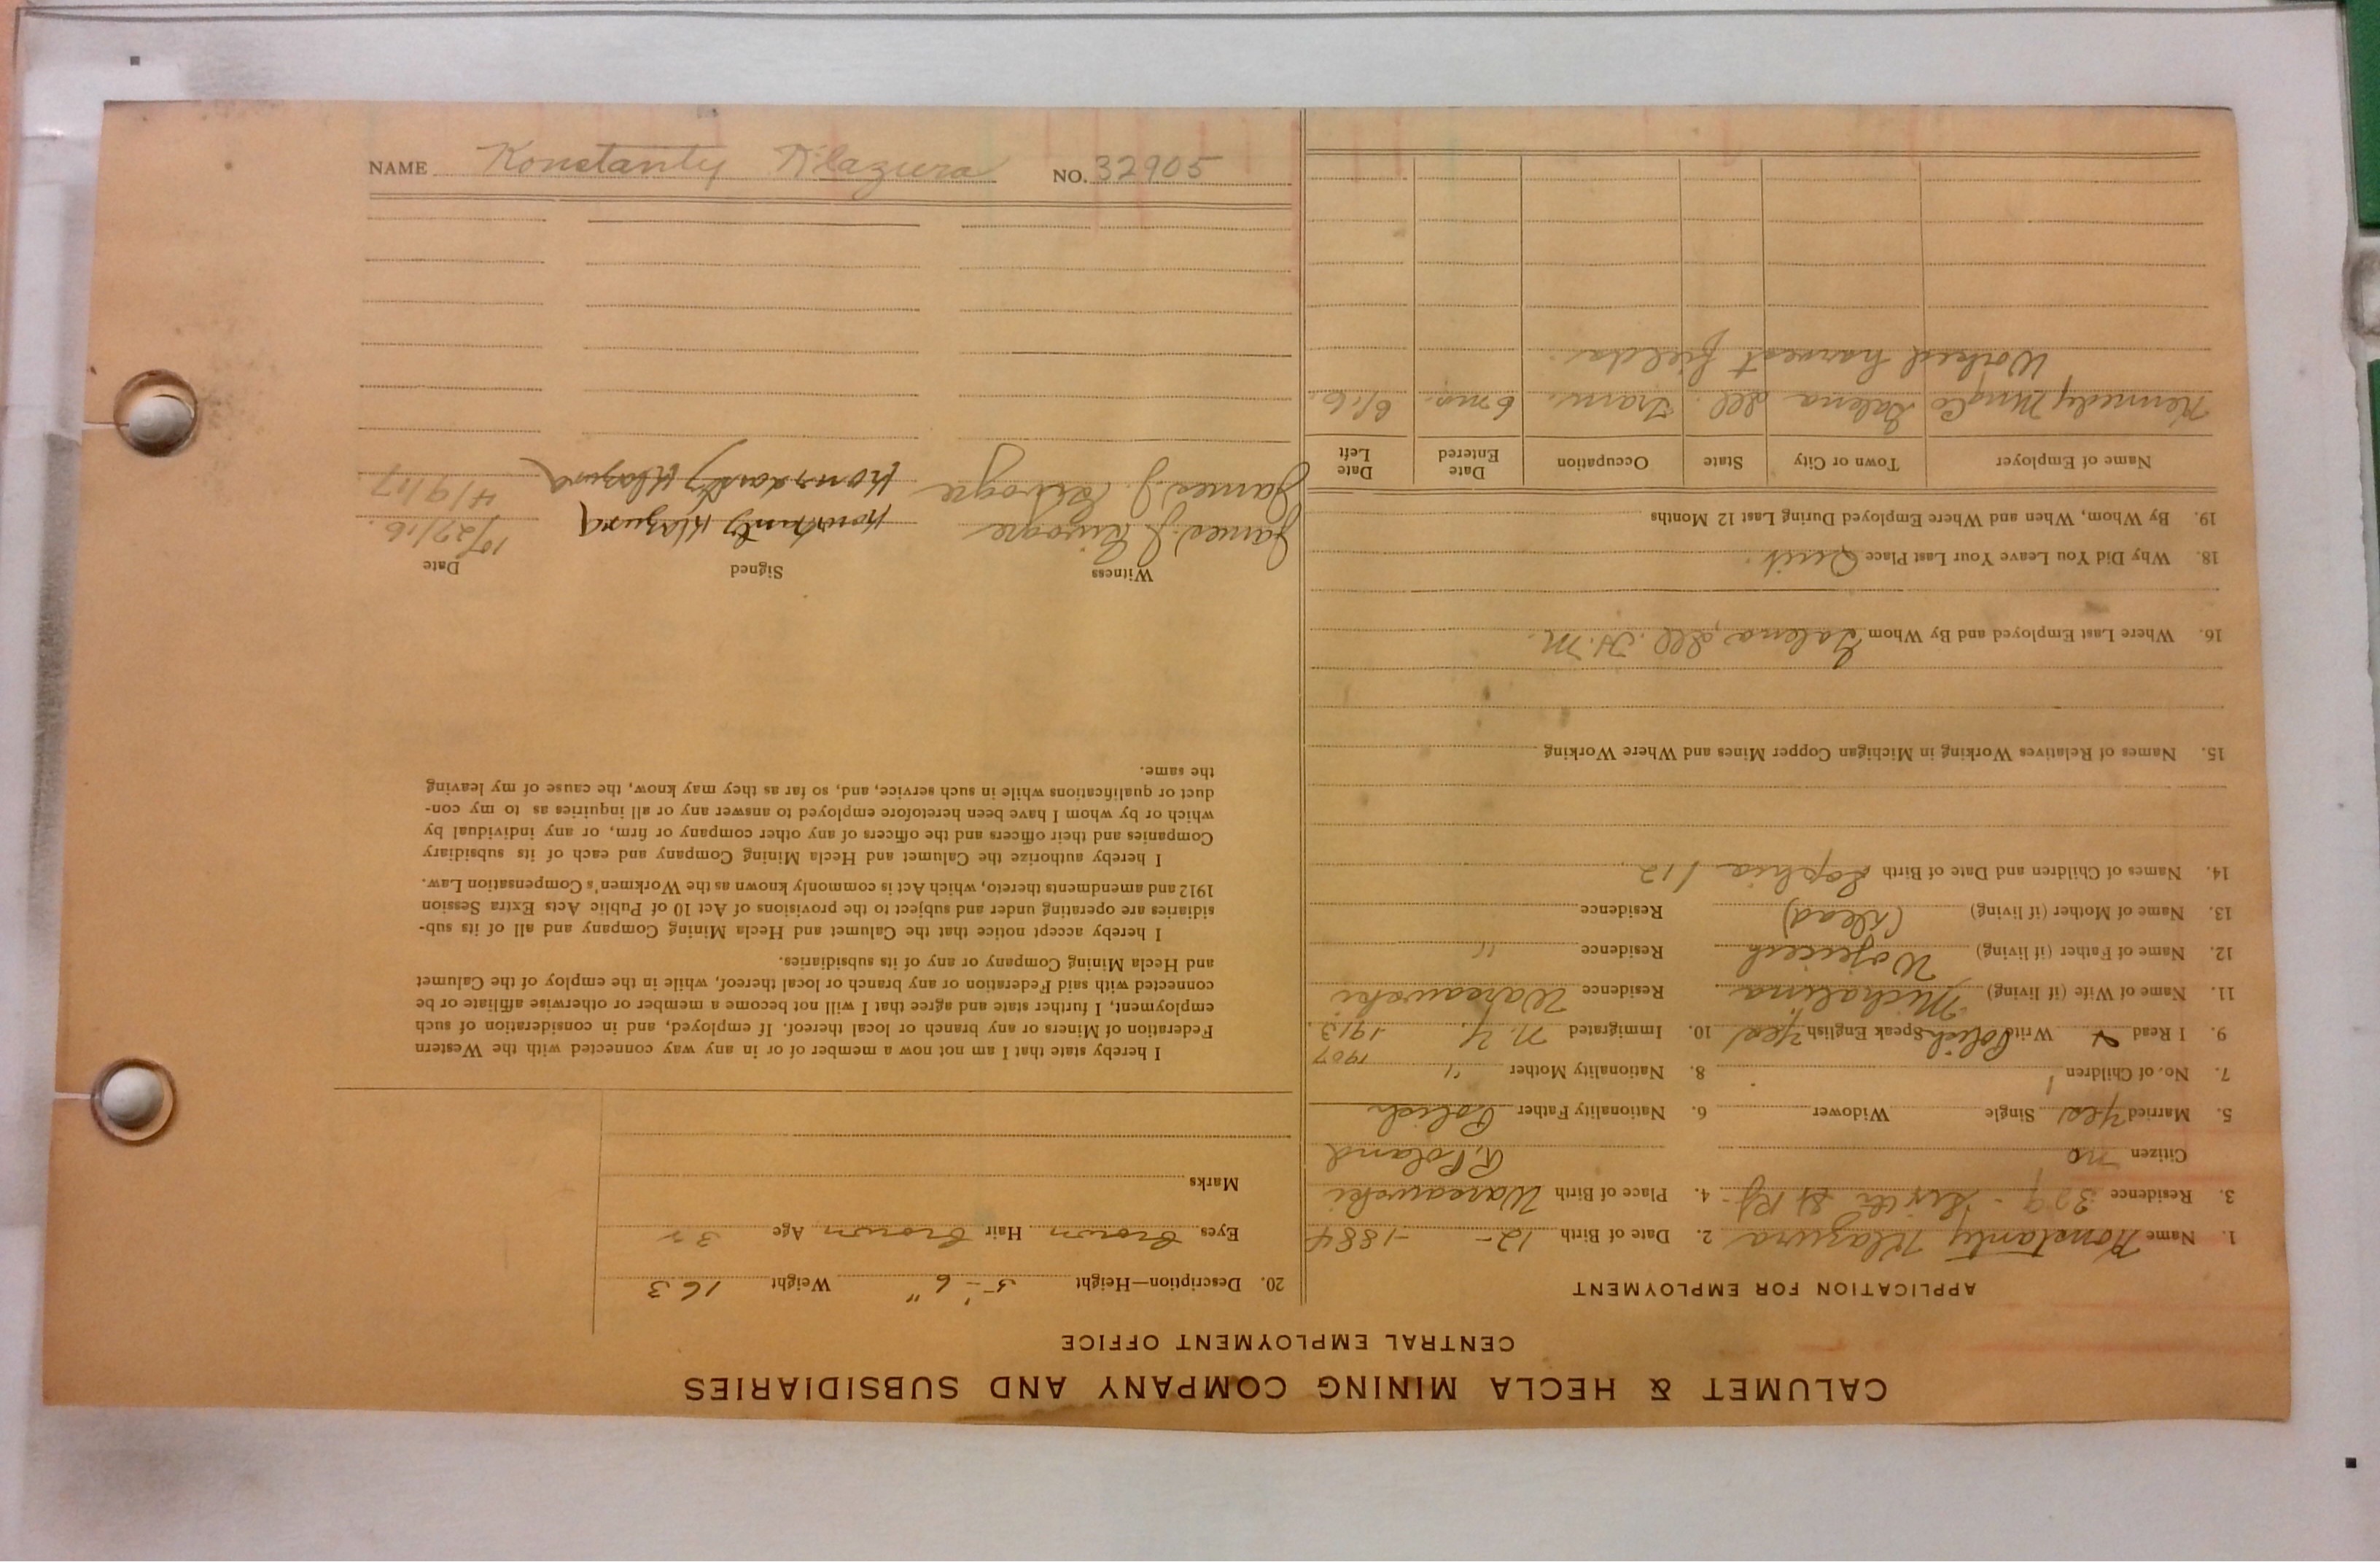 CALUMET & HECLA MINING COMPANY AND SUBSIDIARIES
CENTRAL EMPLOYMENT OFFICE
APPLICATION FOR EMPLOYMENT
1. Name Konstanty Klazura 2. Date of Birth 12- -1884
3. Residence 329- St 4. Place of Birth Warsawski
Citizen no R. Poland
5. Married Yes Single Widower 6. Nationality Father Polish
7. No. of Children 1 8. Nationality Mother "
1907
9. I Read Write Polish Speak English Yes 10. Immigrated N.Y. 1913
11. Name of Wife (if living) Michalina Residence Warsawski
12. Name of Father (if living) Wojciech Residence "
13. Name of Mother (if living) (dead) Residence
14. Names of Children and Date of Birth Sophia 1 12
15. Names of Relatives Working in Michigan Copper Mines and Where Working
16. Where Last Employed and By Whom Galena, Ill.
18. Why Did You Leave Your Last Place Quit.
19. By Whom, When and Where Employed During Last 12 Months
Name of Employer Town or City State Occupation Date Entered Date Left
Kennedy Mng Co Galena Ill. Tram. 6 mo. 6/16.
Worked harvest fields.
20. Description—Height 5'-6" Weight 163
Eyes Brown Hair Brown Age 32
Marks
I hereby state that I am not now a member of or in any way connected with the Western
Federation of Miners or any branch or local thereof. If employed, and in consideration of such
employment, I further state and agree that I will not become a member or otherwise affiliate or be
connected with said Federation or any branch or local thereof, while in the employ of the Calumet
and Hecla Mining Company or any of its subsidiaries.
I hereby accept notice that the Calumet and Hecla Mining Company and all of its sub-
sidiaries are operating under and subject to the provisions of Act 10 of Public Acts Extra Session
1912 and amendments thereto, which Act is commonly known as the Workmen's Compensation Law.
I hereby authorize the Calumet and Hecla Mining Company and each of its subsidiary
Companies and their officers and the officers of any other company or firm, or any individual by
which or by whom I have been heretofore employed to answer any or all inquiries as to my con-
duct or qualifications while in such service, and, so far as they may know, the cause of my leaving
the same.
Witness Signed Date
James J. Konstanty Klazura 10/27/16.
James J. Konstanty Klazura 4/9/17
NAME Konstanty Klazura NO. 32905